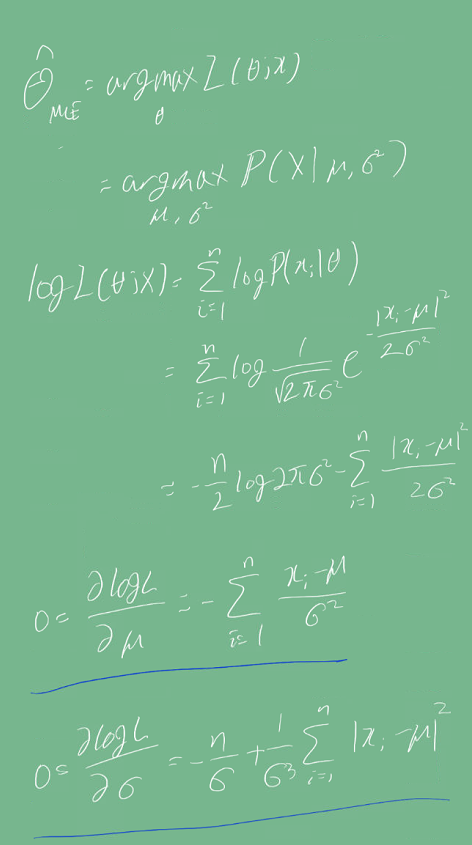 θ̂_MLE = argmax_θ L(θ;x)
= argmax_{μ,σ²} P(X|μ,σ²)
log L(θ;X) = Σ_{i=1}^{n} log P(x_i|θ)
= Σ_{i=1}^{n} log 1/√(2πσ²) e^{-|x_i-μ|²/2σ²}
= -n/2 log 2πσ² - Σ_{i=1}^{n} |x_i-μ|²/2σ²
0 = ∂logL/∂μ = - Σ_{i=1}^{n} (x_i-μ)/σ²
0 = ∂logL/∂σ = -n/σ + 1/σ³ Σ_{i=1}^{n} |x_i-μ|²